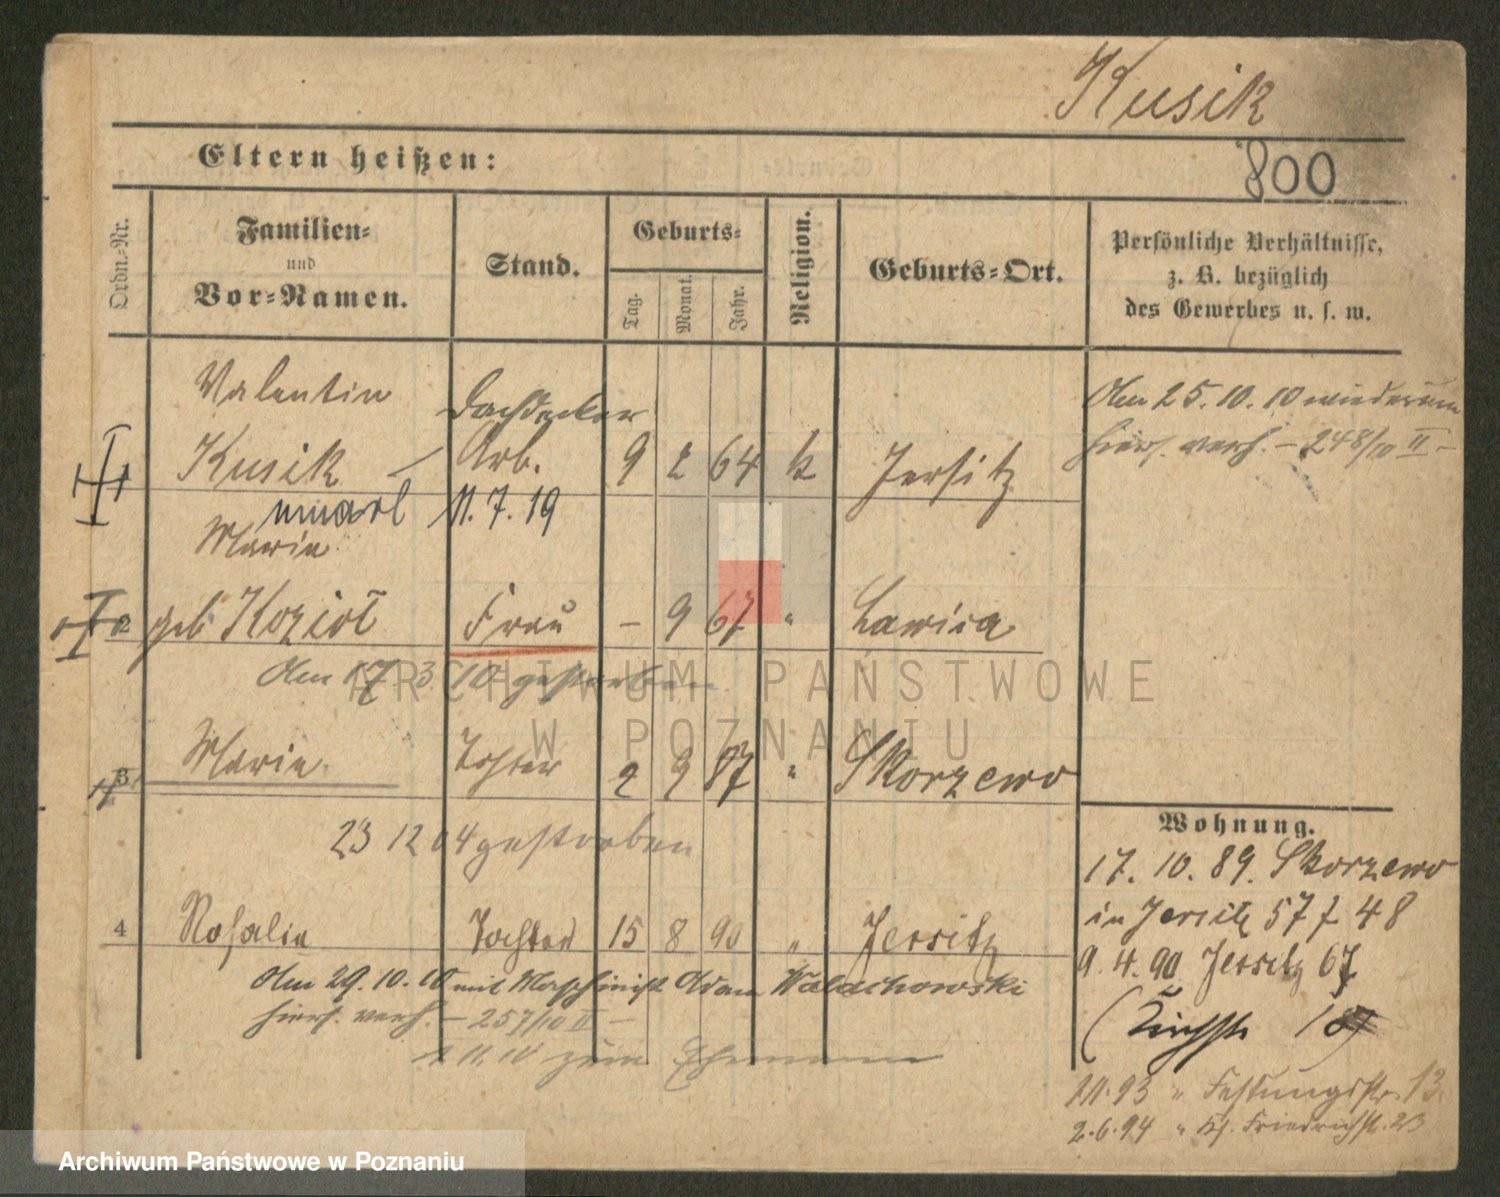 Kusik
800
Eltern heißen:
Ordn.-Nr.
Familien-
und
Vor-Namen.
Stand.
Geburts-
Tag.
Monat.
Jahr.
Religion.
Geburts-Ort.
Persönliche Verhältnisse,
z. B. bezüglich
des Gewerbes u. s. w.
Valentin Dachdecker
Kusik Arb. 9 2 64 k Jersitz
Am 25.10.10 wiederum
hiers. verh. – 248/10 II –
11.7.19
Maria
2 geb Kozioł Frau – 9 67 " Lawica
Am 17 3 10 gestorben
3 Maria Tochter 2 9 87 " Skorzewo
23 12 04 gestorben
4 Rosalia Tochter 15 8 90 " Jersitz
Am 29.10.10 mit Maschinist Adam Walachowski
hiers. verh. – 257/10 II –
11.10 zum Ehemann
Wohnung.
17. 10. 89. Skorzewo
in Jersitz 57 f 48
9. 4. 90 Jersitz 67
93 " Festungsstr. 13
2.6.94 " Friedrichstr. 23
ARCHIWUM PAŃSTWOWE
W POZNANIU
Archiwum Państwowe w Poznaniu